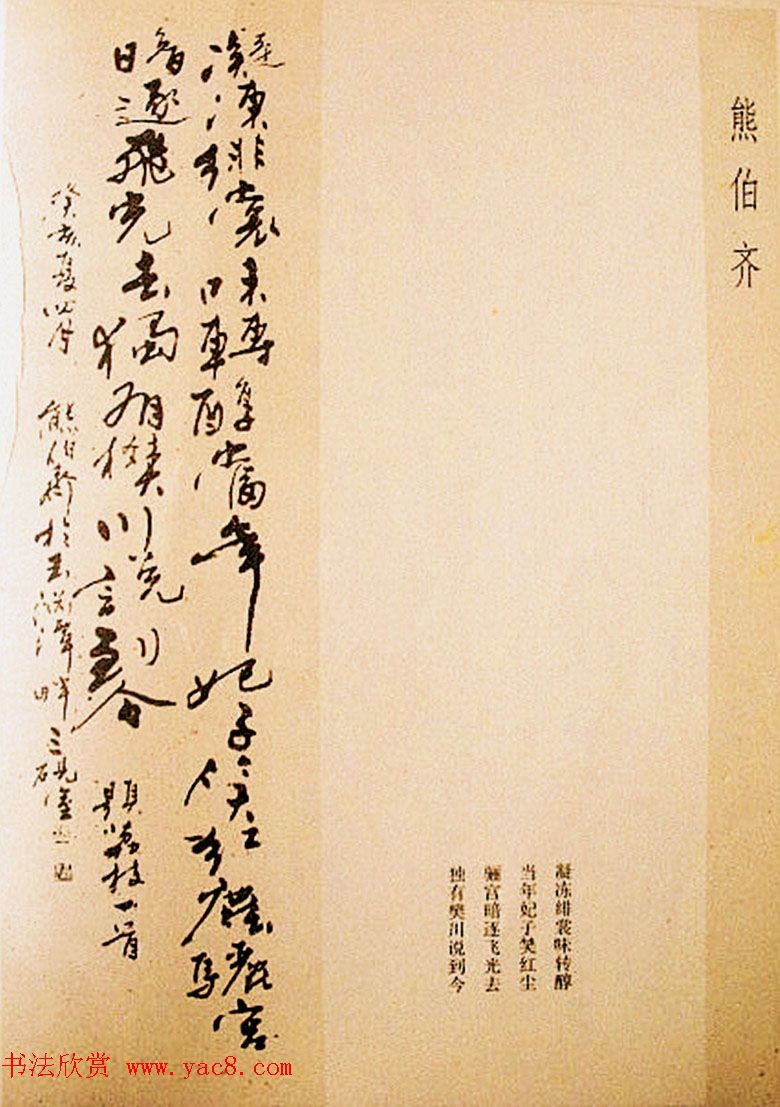 熊伯齐
凝冻绯裳味转醇
当年妃子樊红尘
骊宫暗逐飞光去
独有樊川说到今
凝凍緋裳味轉醇當年妃子笑紅塵驪宮
暗逐飛光去獨有樊川說到今 題荔枝一首
癸亥夏四月 熊伯齊於玉淵潭畔三硯堂
书法欣赏 www.yac8.com